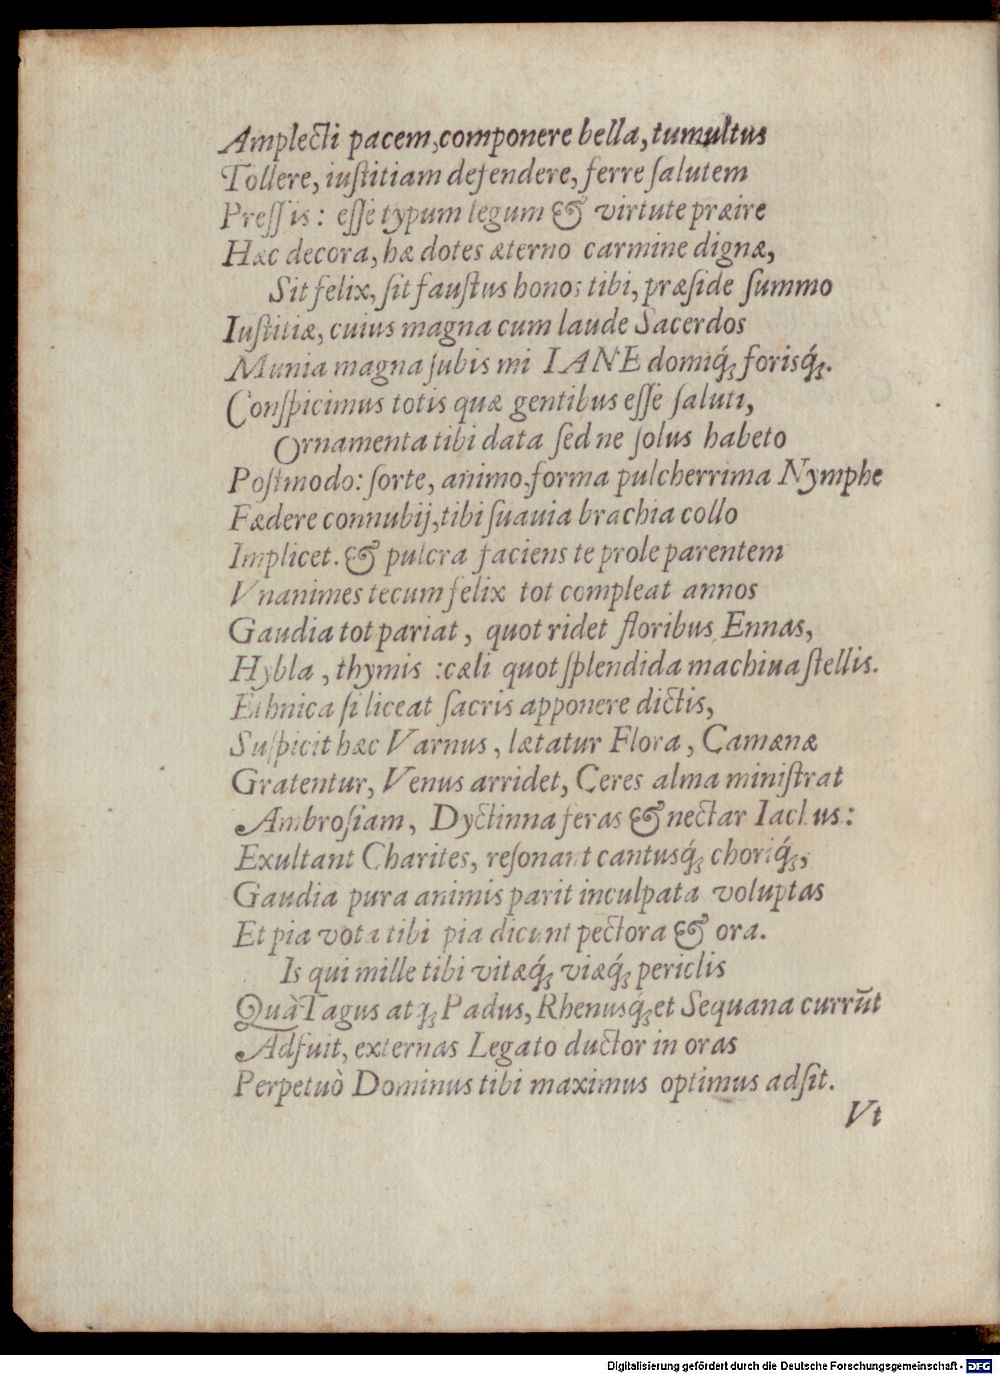 Amplecti pacem, componere bella, tumultus
Tollere, iuſtitiam defendere, ferre ſalutem
Preſſis: eſſe typum legum & virtute præire
Hæc decora, hæ dotes æterno carmine dignæ,
Sit felix, ſit fauſtus honos tibi, præſide ſummo
Iuſtitiæ, cuius magna cum laude Sacerdos
Munia magna ſubis mi IANE domiq́ꝫ forisq́ꝫ.
Conſpicimus totis quæ gentibus eſſe ſaluti,
Ornamenta tibi data ſed ne ſolus habeto
Poſtmodo: ſorte, animo, forma pulcherrima Nymphe
Fædere connubij, tibi ſuauia brachia collo
Implicet. & pulcra faciens te prole parentem
Vnanimes tecum felix tot compleat annos
Gaudia tot pariat, quot ridet floribus Ennas,
Hybla, thymis :cæli quot ſplendida machiua ſtellis.
Ethnica ſi liceat ſacris apponere dictis,
Suſpicit hæc Varnus, lætatur Flora, Camænæ
Gratentur, Venus arridet, Ceres alma miniſtrat
Ambroſiam, Dyctinna feras & nectar Iachus:
Exultant Charites, reſonant cantusq́ꝫ choriq́ꝫ,
Gaudia pura animis parit inculpata voluptas
Et pia vota tibi pia dicunt pectora & ora.
Is qui mille tibi vitæq́ꝫ viæq́ꝫ periclis
Quà Tagus atqꝫ Padus, Rhenusq́ꝫ et Sequana currūt
Adfuit, externas Legato ductor in oras
Perpetuò Dominus tibi maximus optimus adſit.
Vt
Digitalisierung gefördert durch die Deutsche Forschungsgemeinschaft - DFG